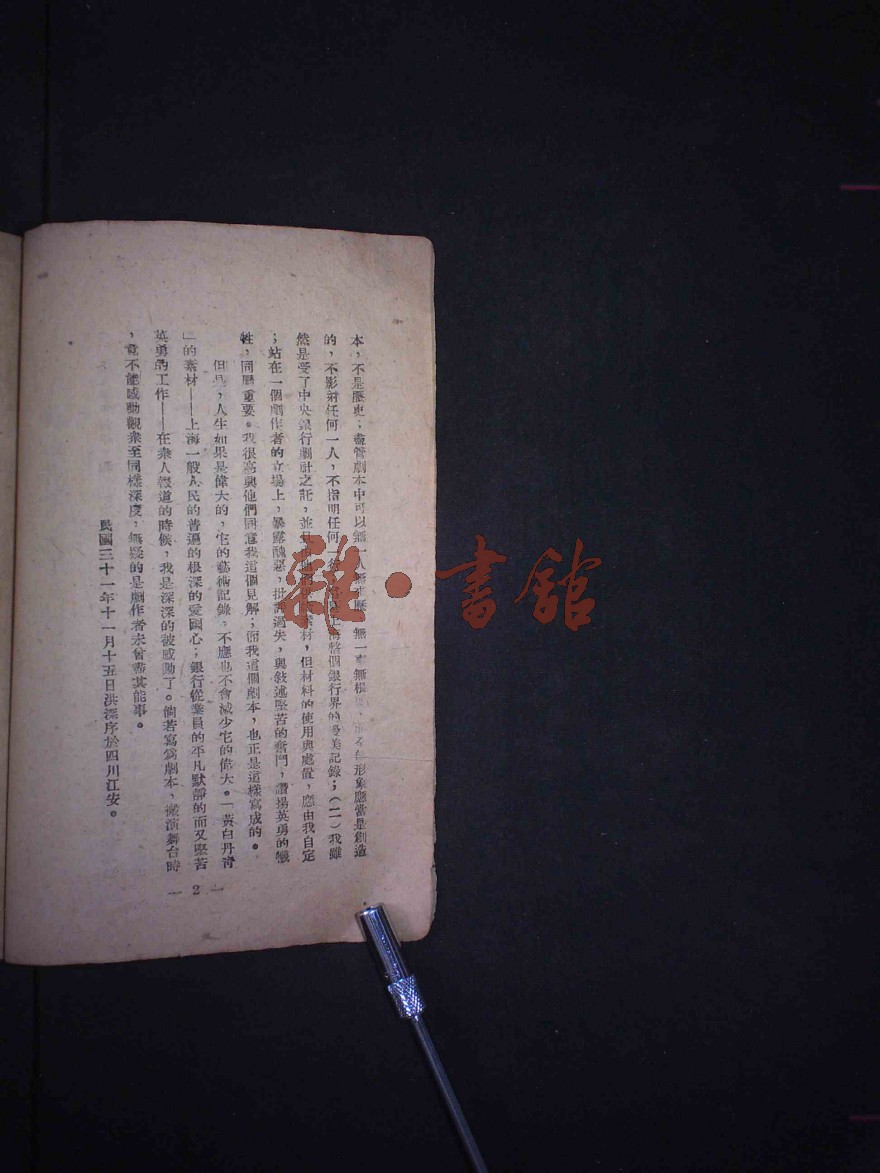 本，不是歷史；盡管劇本中可以無一人無來歷，無一事無根，形象應當是創造
的，不影射任何一人，不指明任何一 整個銀行界的優美記錄；（二）我雖
然是受了中央銀行劇社之託，並 材，但材料的使用與處置，應由我自定
；站在一個劇作者的立場上，暴露醜惡，批評過失，與敘述堅苦的奮鬥，讚揚英勇的犧
牲，同屬重要。我很高興他們同意我這個見解；而我這個劇本，也正是這樣寫成的。
但是，人生如果是偉大的，它的藝術記錄，不應也不會減少它的偉大。「黃白丹青
」的素材——上海一般人民的普遍的根深的愛國心；銀行從業員的平凡默靜的而又堅苦
英勇的工作——在衆人報道的時候，我是深深的被感動了。倘若寫爲劇本，搬演舞台時
，竟不能感動觀衆至同樣深度，無疑的是劇作者未曾盡其能事。
民國三十一年十一月十五日洪深序於四川江安。
— 2 —
雜·書館